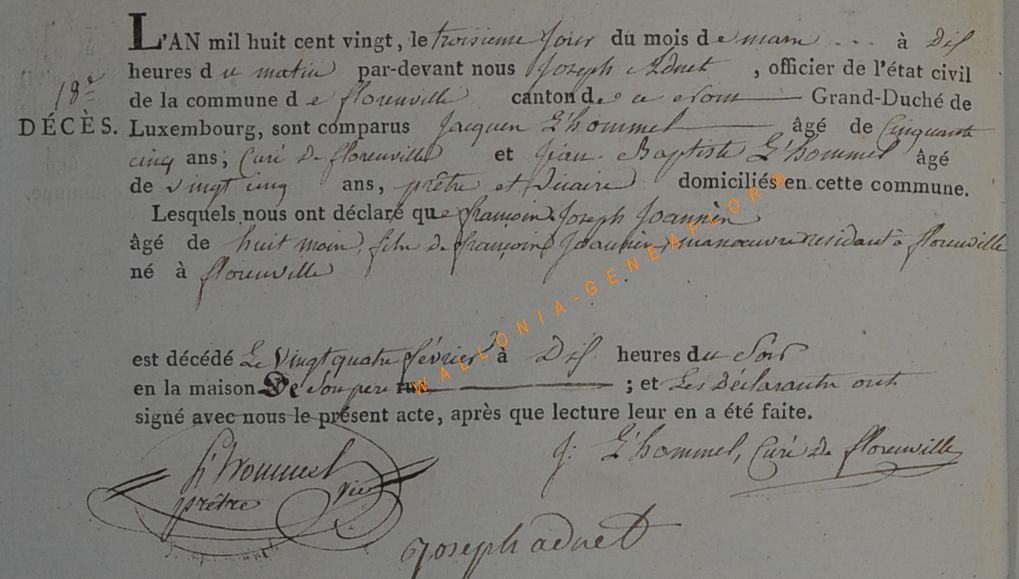 L'AN mil huit cent vingt, le troisieme jour du mois de mars ... à Dis
heures du matin par-devant nous Joseph Adnet, officier de l'état civil
18e
de la commune de florenville canton de ce nom Grand-Duché de
DÉCÈS. Luxembourg, sont comparus Jacques L'hommel âgé de Cinquante
cinq ans; Curé de florenville et Jean Baptiste L'hommel âgé
de vingt cinq ans, prêtre et vicaire domiciliés en cette commune.
Lesquels nous ont déclaré que françois Joseph Joannès
âgé de huit mois, fils de françois Joannès, manœuvre residant à florenville
né à florenville
est décédé Le vingt quatre février à Dis heures du Soir
en la maison De Son pere rue ; et Les Déclarants ont
signé avec nous le présent acte, après que lecture leur en a été faite.
L'hommel
prêtre vic
J: L'hommel, Curé de florenville
Joseph adnet
WALLONIA-GENEAFLOR®